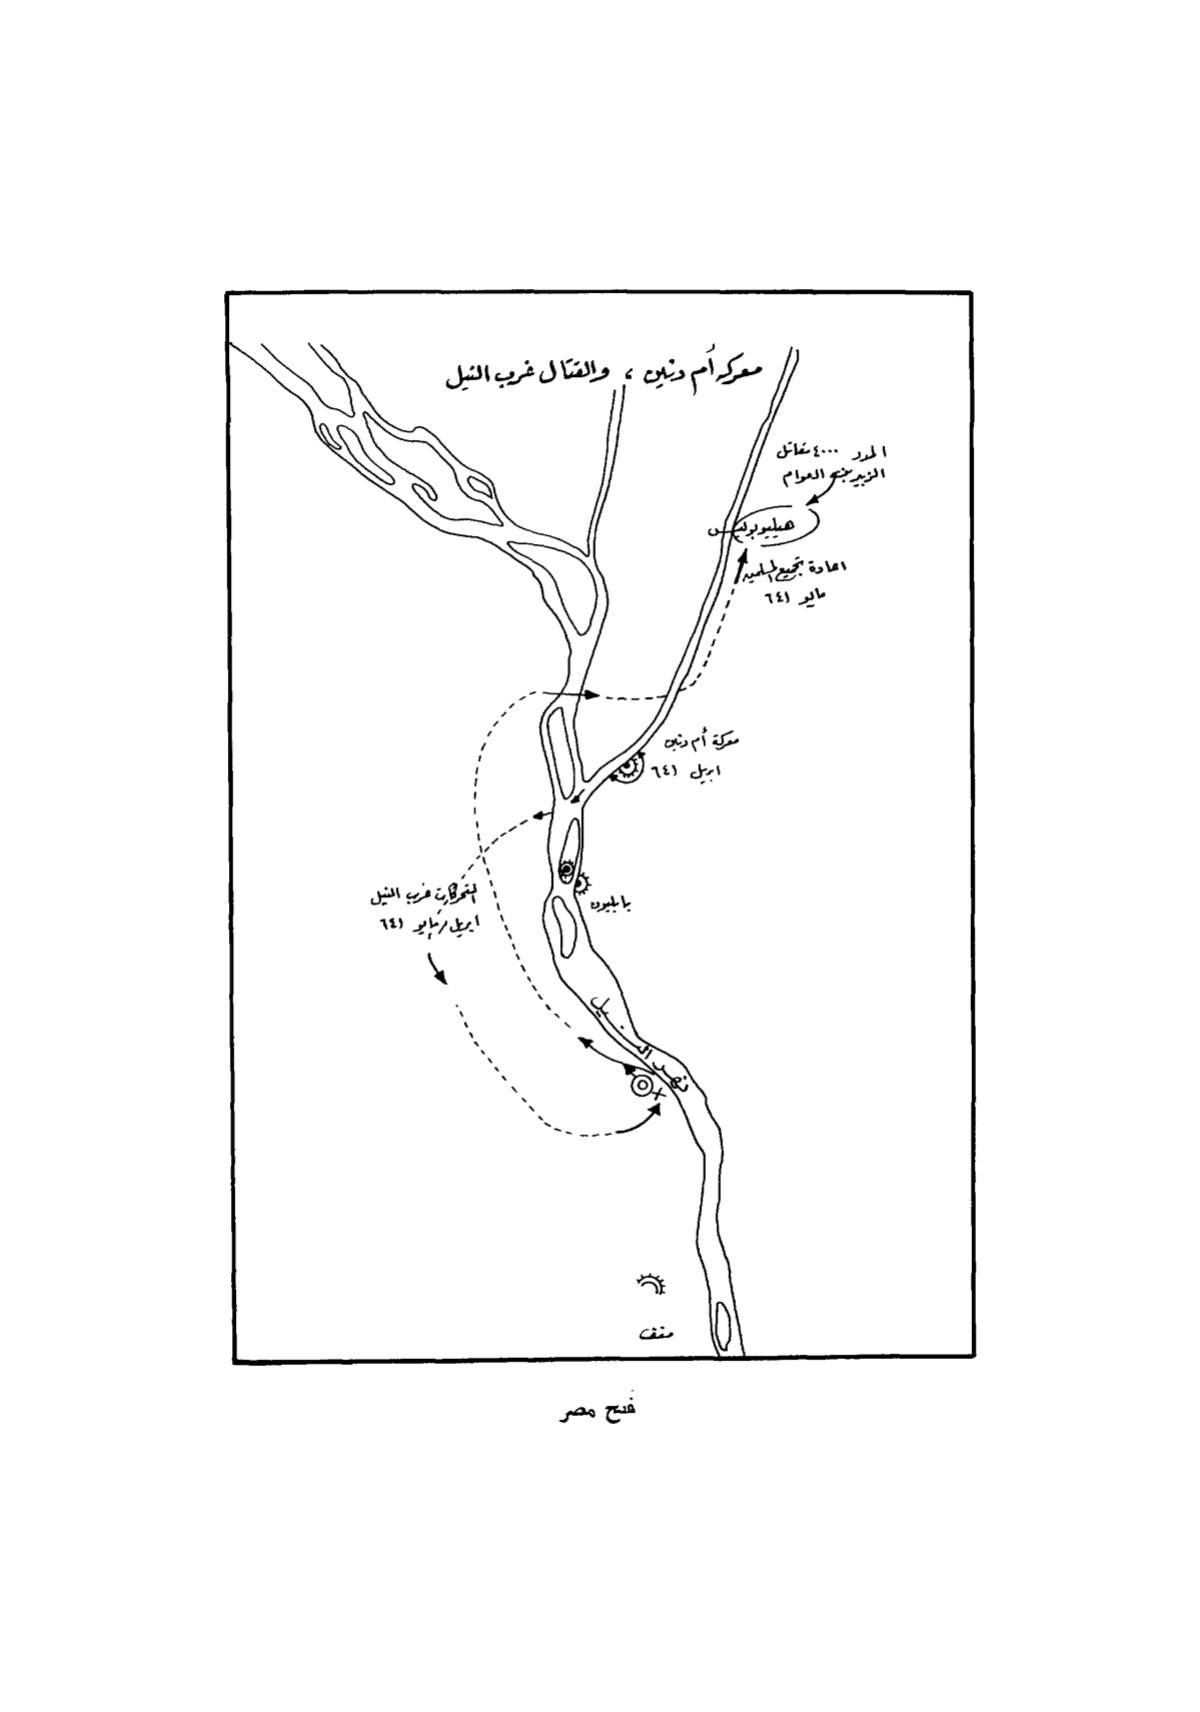 معركة أم دنين ، والقتال غرب النيل
المدد ٤٠٠٠ مقاتل
الزبير بن العوام
هيليوبوليس
اعادة تجميع المسلمين
مايو ٦٤١
معركة أم دنين
ابريل ٦٤١
التحركات غرب النيل
ابريل / مايو ٦٤١
بابليون
نهر النيل
منف
فتح مصر